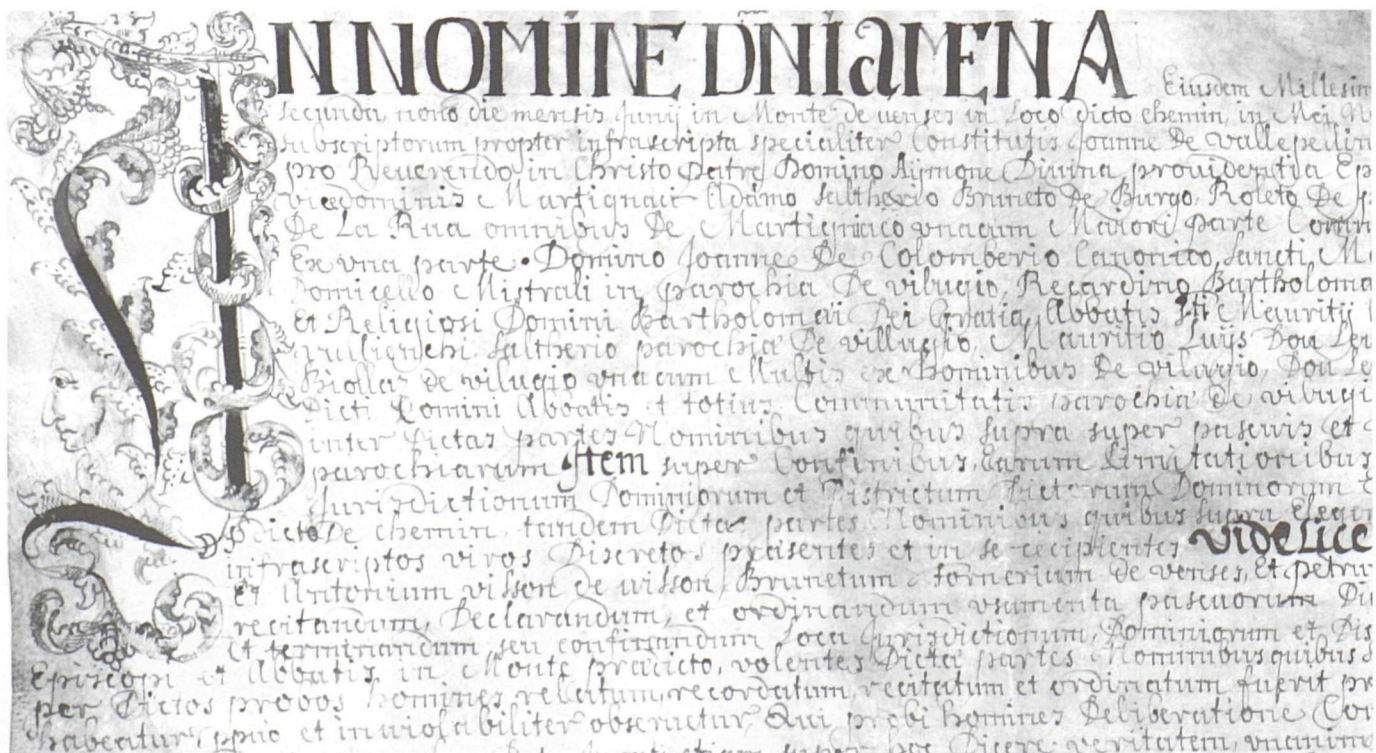 IN NOMINE DNI AMEN A
Eiusdem Millesim
secundu nono die mensis Junij in Monte de uenses in Loco dicto chemin, in Mei
subscriptorum propter infrascripta specialiter Constitutis Joanne De vallepelin
pro Reuerendo in Christo Patre Domino Aijmone Diuina prouidentia Ep
vicedominis Martigniaci Adamo Saltherio Bruneto De Burgo, Roleto De
De La Rua omnibus De Martigniaco vnacum Maiori parte Comm
Ex vna parte. Domino Joanne De Colomberio Canonico, Sancti, M
Domicello Mistrali in, parochia De vilugio, Recardino, Bartholoma
et Religiosi Domini Bartholomæi Dei Gratia, Abbatis Sti Mauritij
Saltherio parochia De villugio, Mauritio Luijs Dou Le
Biollaz de vilugio vna cum Multis ex hominibus De vilugio, Dou Le
Dicti Domini Abbatis et totius Communitatis parochia de vilugi
inter Dictas partes Nominibus quibus supra super pascuis et
parochiarum Item super Confinibus, Earum Limitationibus
Jurisdictionum Dominiorum et Districtum Dictorum Dominorum
Dicto De chemin, tandem Dictæ partes Nominibus quibus supra Eleger
infrascriptos viros Discretos præsentes et in se recipientes videlice
et Antonium visson de uisson, Brunetum fornerium de venses, Et petru
recitandum, Declarandum, et ordinandum vsumenta pascuorum Di
et terminandum, seu confinandum Loca Jurisdictionum, Dominiorum et Dis
Episcopi et Abbatis in Monte prædicto, volentes Dictæ partes Nominibus quibus s
per Dictos probos homines, relictum, recordatum, recitatum et ordinatum fuerit pr
habeatur, ppuo et inuiolabiliter obseruetur Qui probi homines Deliberatione Con
super hoc Dicere veritatem, vnanime